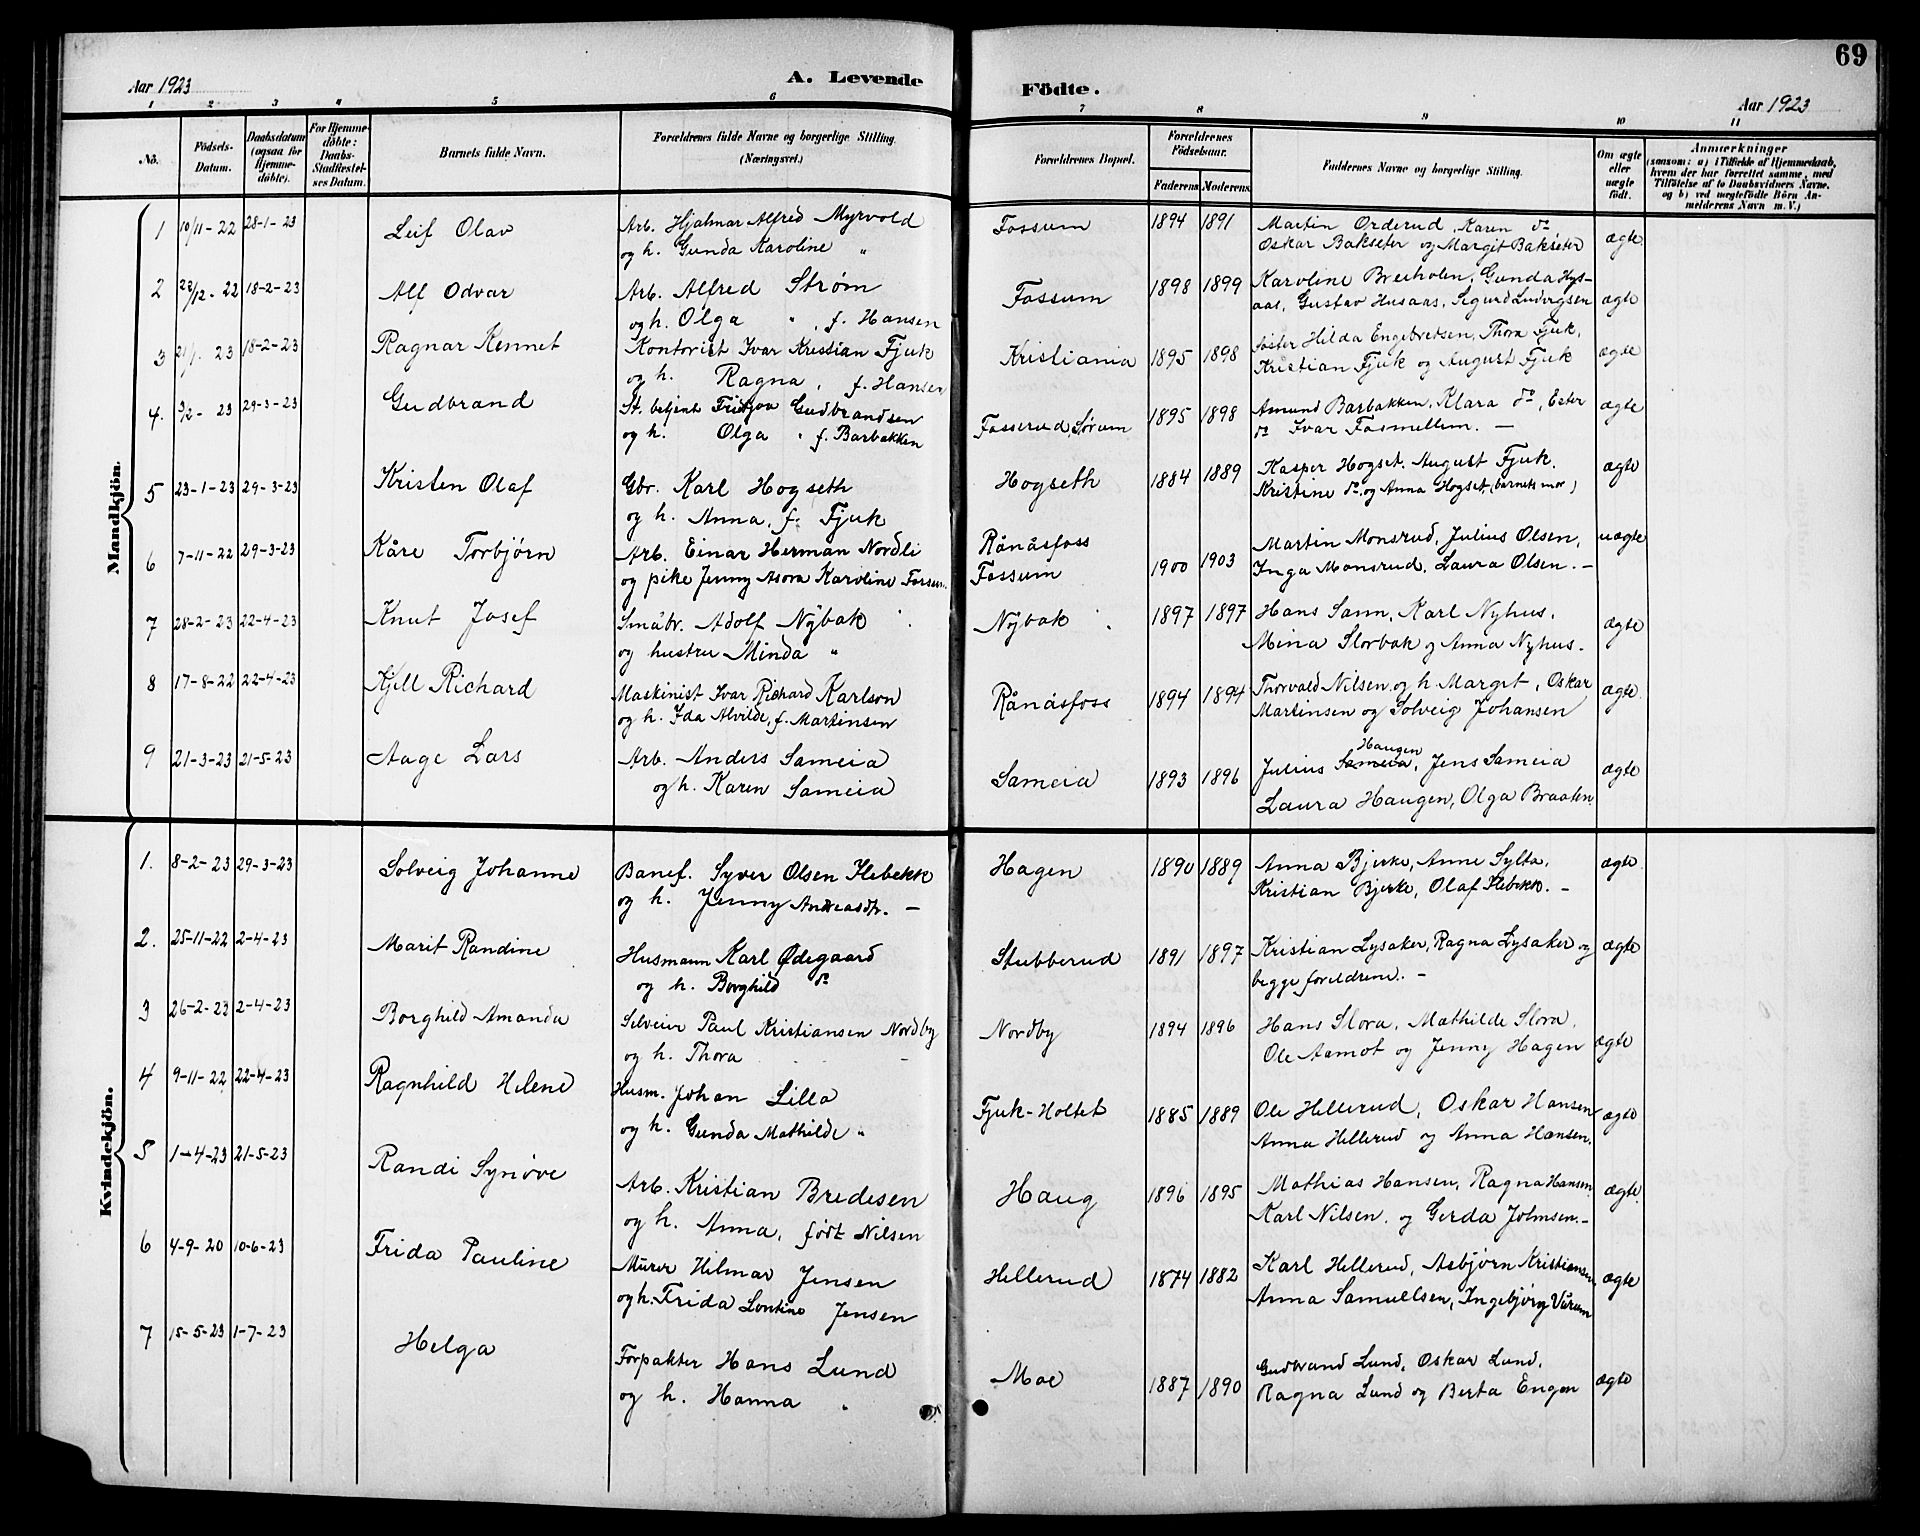 69
Aar 1923
A. Levende
Födte.
Aar 1923
1 2 3 4 5 6 7 8 9 10 11
No.
Födsels-
Datum.
Daabsdatum
(ogsaa for
Hjemme-
døbte).
For Hjemme-
døbte:
Daabs-
Stadfæstel-
ses Datum.
Barnets fulde Navn.
Forældrenes fulde Navne og borgerlige Stilling.
(Næringsvei.)
Forældrenes Bopæl.
Forældrenes
Födselsaar.
Faderens Moderens
Faddernes Navne og borgerlige Stilling.
Om ægte
eller
uægte
födt.
Anmærkninger
(saasom: a) i Tilfælde af Hjemmedaab,
hvem der har forrettet samme, med
Tilföielse af to Daabsvidners Navne.
og b) ved uægtefödte Börn An-
melderens Navn m. V.)
Mandkjön.
1 10/11-22 28-1-23 Leif Olav Arb. Hjalmar Alfred Myrvold Fossum 1894 1891 Martin Orderud, Karen do
og h. Gunda Karoline " Oskar Bakseter og Margit Bakseter ægte
2 22/12-22 18-2-23 Alf Odvar Arb. Alfred Strøm Fossum 1898 1899 Karoline Breiholen, Gunda Hys-
og h. Olga " , f. Hansen aas, Gustav Husaas, Sigurd Ludvigsen ægte
3 21/1 23 18-2-23 Ragnar Kennet Kontorist Ivar Kristian Fjuk Kristiania 1895 1898 søster Hilda Engebretsen, Thora Fjuk,
og h. Ragna, f. Hansen Kristian Fjuk og August Fjuk ægte
4. 3/2- 23 29-3-23 Gudbrand St. betjent Fritjov Gudbrandsen Fosserud, Sørum 1895 1898 Asmund Barbakken, Klara do, Ester ægte
og h. Olga " f. Barbakken do Ivar Fosmellem. —
5 23-1-23 29-3-23 Kristen Olaf Gbr. Karl Hogseth Hogseth 1884 1889 Kasper Hogset. August Fjuk. ægte
og h. Anna, f. Fjuk Kristine do. og Anna Hogset, (barnets mor)
6 7-11-22 29-3-23 Kåre Torbjørn Arb. Einar Herman Nordli Rånåsfoss Martin Monsrud, Julius Olsen, uægte
og pike Jenny Asora Karoline Fossum. Fossum 1900 1903 Inga Monsrud, Laura Olsen. —
7 28-2-23 22-4-23 Knut Josef Småbr. Adolf Nybak Nybak 1897 1897 Hans Sann, Karl Nyhus,
og hustru Minda " Mina Storbak og Anna Nyhus. ægte
8 17-8-22 22-4-23 Kjell Richard Maskinist Ivar Richard Karlson Rånåsfoss 1894 1894 Thorvald Nilsen og h. Margit, Oskar
og h. Ida Alvilde, f. Martinsen Martinsen og Solveig Johansen ægte
9 21-3-23 21-5-23 Aage Lars Arb. Anders Sameia Sameia 1893 1896 Julius Sameia Haugen, Jens Sameia
og h. Karen Sameia Laura Haugen, Olga Braaten ægte
Kvindekjön.
1. 8-2-23 29-3-23 Solveig Johanne Banef. Syver Olsen Flebekk Hagen 1890 1889 Anna Bjerke, Anne Sylta, ægte
og h. Jenny Andreasdtr. — Kristian Bjerke, Olaf Flebekk. —
2. 25-11-22 2-4-23 Marit Randine Husmann Karl Ødegaard Stubberud 1891 1897 Kristian Lysaker, Ragna Lysaker og ægte
og h. Borghild do begge foreldrene. —
3 26-2-23 2-4-23 Borghild Amanda Selveier Paul Kristiansen Nordby Nordby 1894 1896 Hans Slora, Mathilde Slora,
og h. Thora — Ole Aamot og Jenny Hagen ægte
4 9-11-22 22-4-23 Ragnhild Helene Husm. Johan Lilla Fjuk-Holtet 1885 1889 Ole Hellerud, Oskar Hansen
og h. Gunda Mathilde " Anna Hellerud og Anna Hansen. ægte
5 1-4-23 21-5-23 Randi Synøve Arb. Kristian Bredesen Haug 1896 1895 Mathias Hansen, Ragna Hansen
og h. Anna, født Nilsen Karl Nilsen, og Gerda Johnsen. — ægte
6 4-9-20 10-6-23 Frida Pauline Murer Hilmar Jensen Hellerud 1874 1882 Karl Hellerud, Asbjørn Kristiansen,
og h. Frida Jensen Anna Samuelsen, Ingebjørg Vårum ægte
7 15-5-23 1-7-23 Helga Forpakter Hans Lund Moe 1887 1890 Gudbrand Lund, Oskar Lund,
og h. Hanna " Ragna Lund og Berta Engen ægte